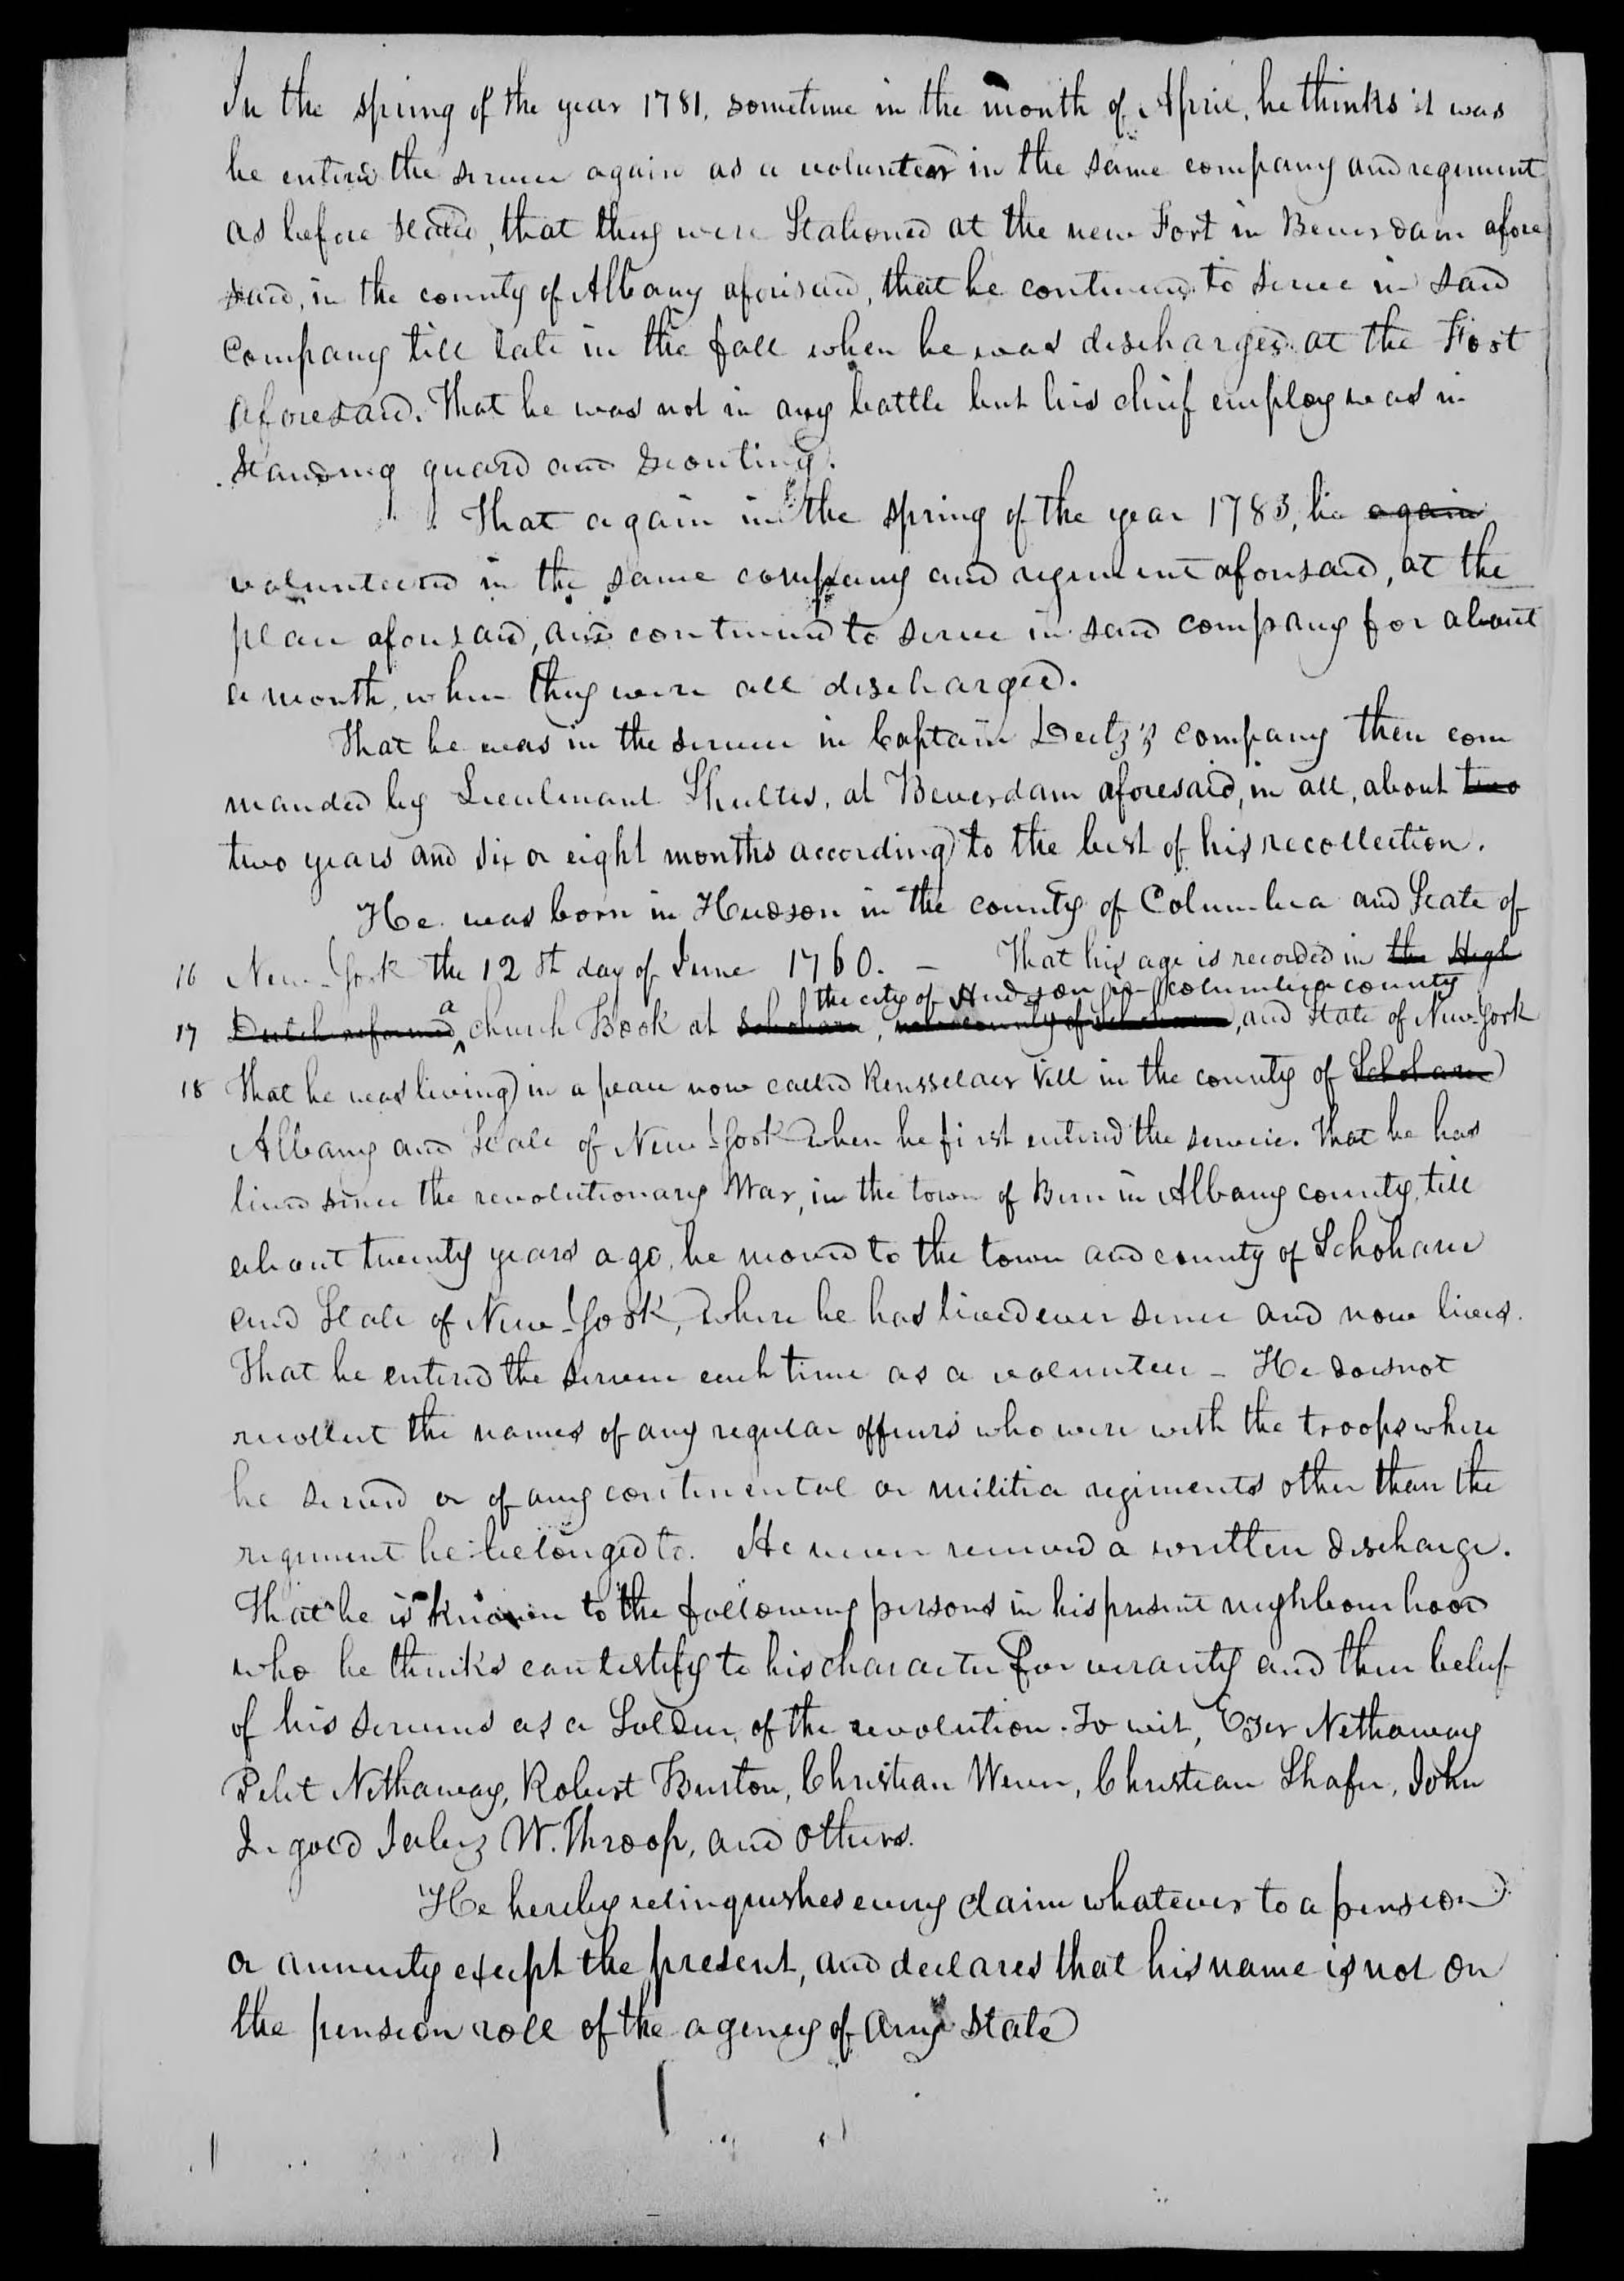 In the spring of the year 1781, sometime in the month of April, he thinks it was
he entered the service again as a volunteer in the same company and regiment
as before stated, that they were Stationed at the new Fort in Beverdam afore
said, in the county of Albany aforesaid, that he continued to serve in said
company till late in the fall when he was discharged at the Fort
aforesaid. That he was not in any battle but his chief employ was in
standing guard and scouting.
That again in the spring of the year 1783, he again
volunteered in the same company and regiment aforesaid, at the
place aforesaid, and continued to serve in said company for about
a month, when they were all discharged.
That he was in the service in Captain Deitz's company then com
manded by Lieutenant Shultes, at Beverdam aforesaid, in all, about two
two years and six or eight months according to the best of his recollection.
He was born in Hudson in the county of Columbia and State of
16 New-York the 12th day of June 1760. – That his age is recorded in the High
the city of Hudson in Columbia county
17 Dutch reformed a church Book at Schoharie, in the county of Schoharie, and State of New York
18 That he was living in a place now called Rensselaer Vill in the county of Schoharie
Albany and State of New-York when he first entered the service. That he has
lived since the revolutionary War, in the town of Bern in Albany county, till
about twenty years ago, he moved to the town and county of Schoharie
and State of New-York, where he has lived ever since and now lives.
That he entered the service each time as a volunteer – He does not
recollect the names of any regular officers who were with the troops where
he served or of any continental or militia regiments other than the
regiment he belonged to. He never received a written discharge.
That he is known to the following persons in his present neighbourhood
who he thinks can testify to his character for veracity and their belief
of his services as a Soldier of the revolution. To wit, Ezer Nethaway
Pelet Nethaway, Robert Burton, Christian Wever, Christian Shafer, John
Ingold Jabez W. Throop, and others.
He hereby relinquishes every claim whatever to a pension
or annuity except the present, and declares that his name is not on
the pension roll of the agency of any state